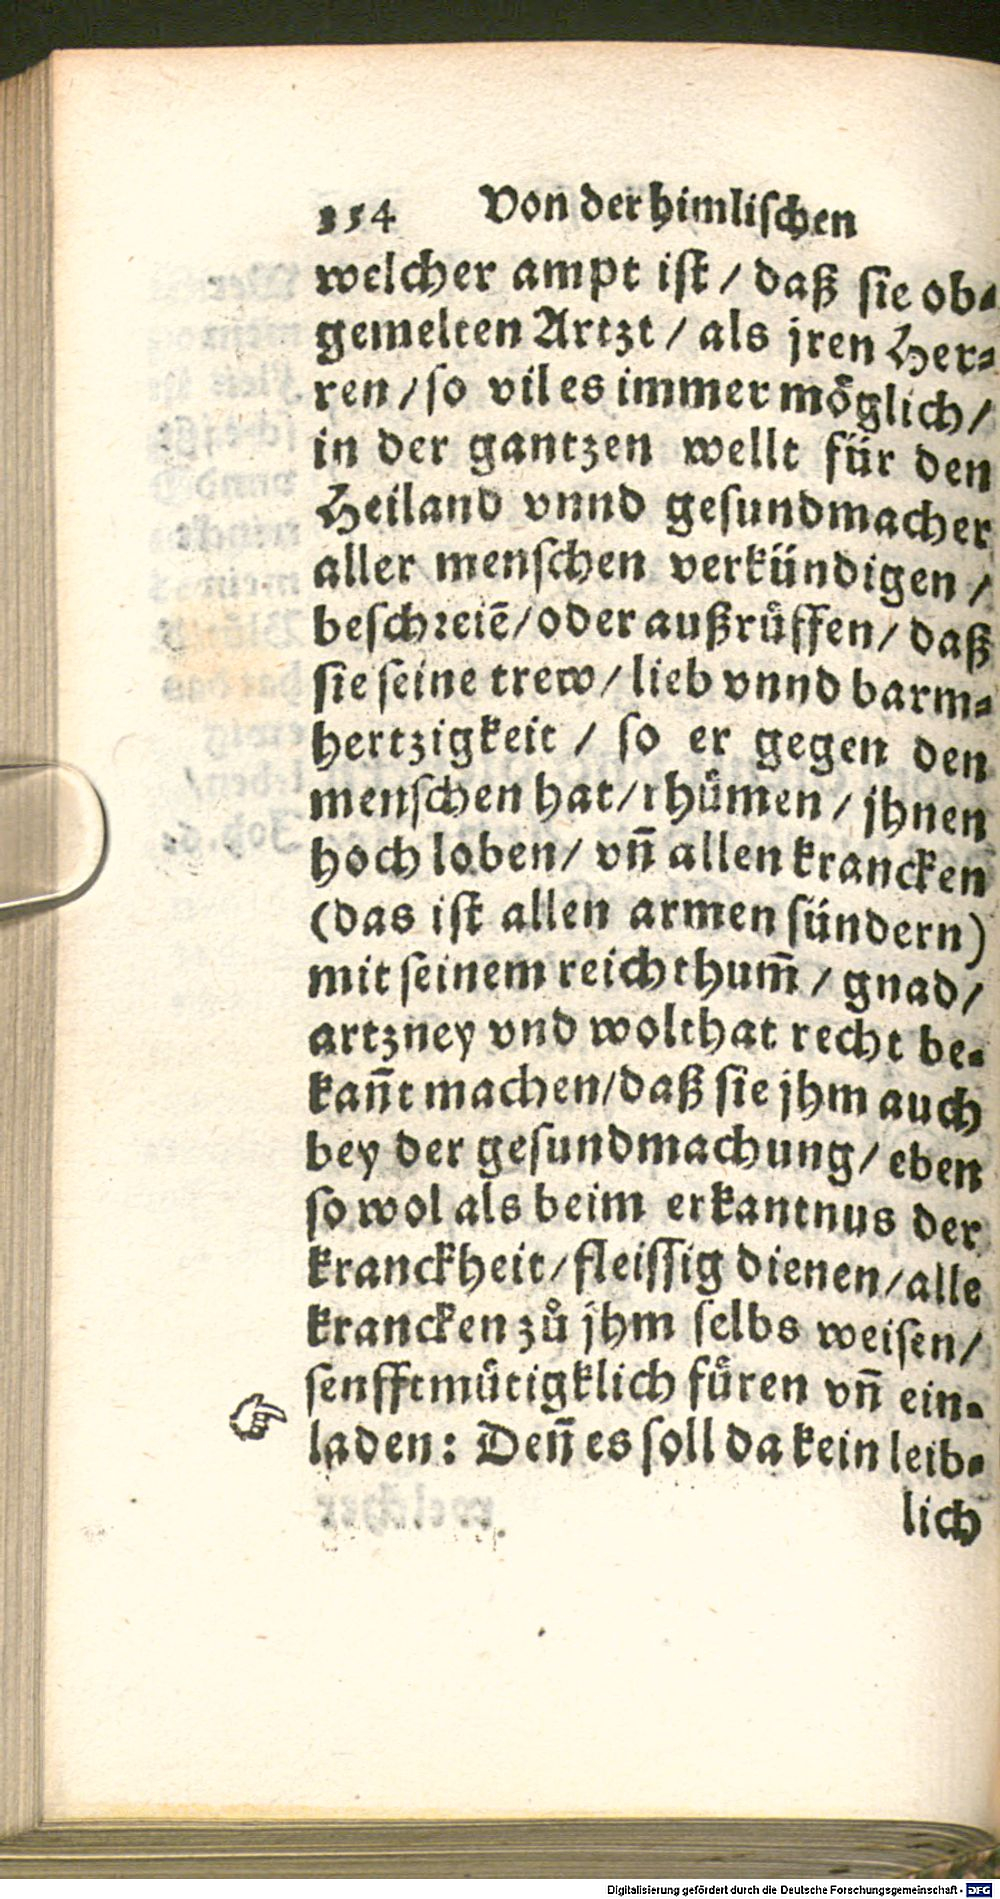 354 Von der himlischen
welcher ampt ist / daß sie ob⸗
gemelten Artzt / als jren Her⸗
ren / so vil es immer mo̊glich /
in der gantzen wellt für den
Heiland vnnd gesundmacher
aller menschen verkündigen /
beschꝛeiē / oder außrůffen / daß
sie seine trew / lieb vnnd barm⸗
hertzigkeit / so er gegen den
menschen hat / rhůmen / jhnen
hoch loben / vn̄ allen krancken
(das ist allen armen sündern)
mit seinem reichthum̄ / gnad /
artzney vnd wolthat recht be⸗
kan̄t machen / daß sie jhm auch
bey der gesundmachung / eben
so wol als beim erkantnus der
kranckheit / fleissig dienen / alle
krancken zů jhm selbs weisen /
senfftmůtigklich fůren vn̄ ein⸗
laden: Den̄ es soll da kein leib⸗
lich
Digitalisierung gefördert durch die Deutsche Forschungsgemeinschaft - DFG